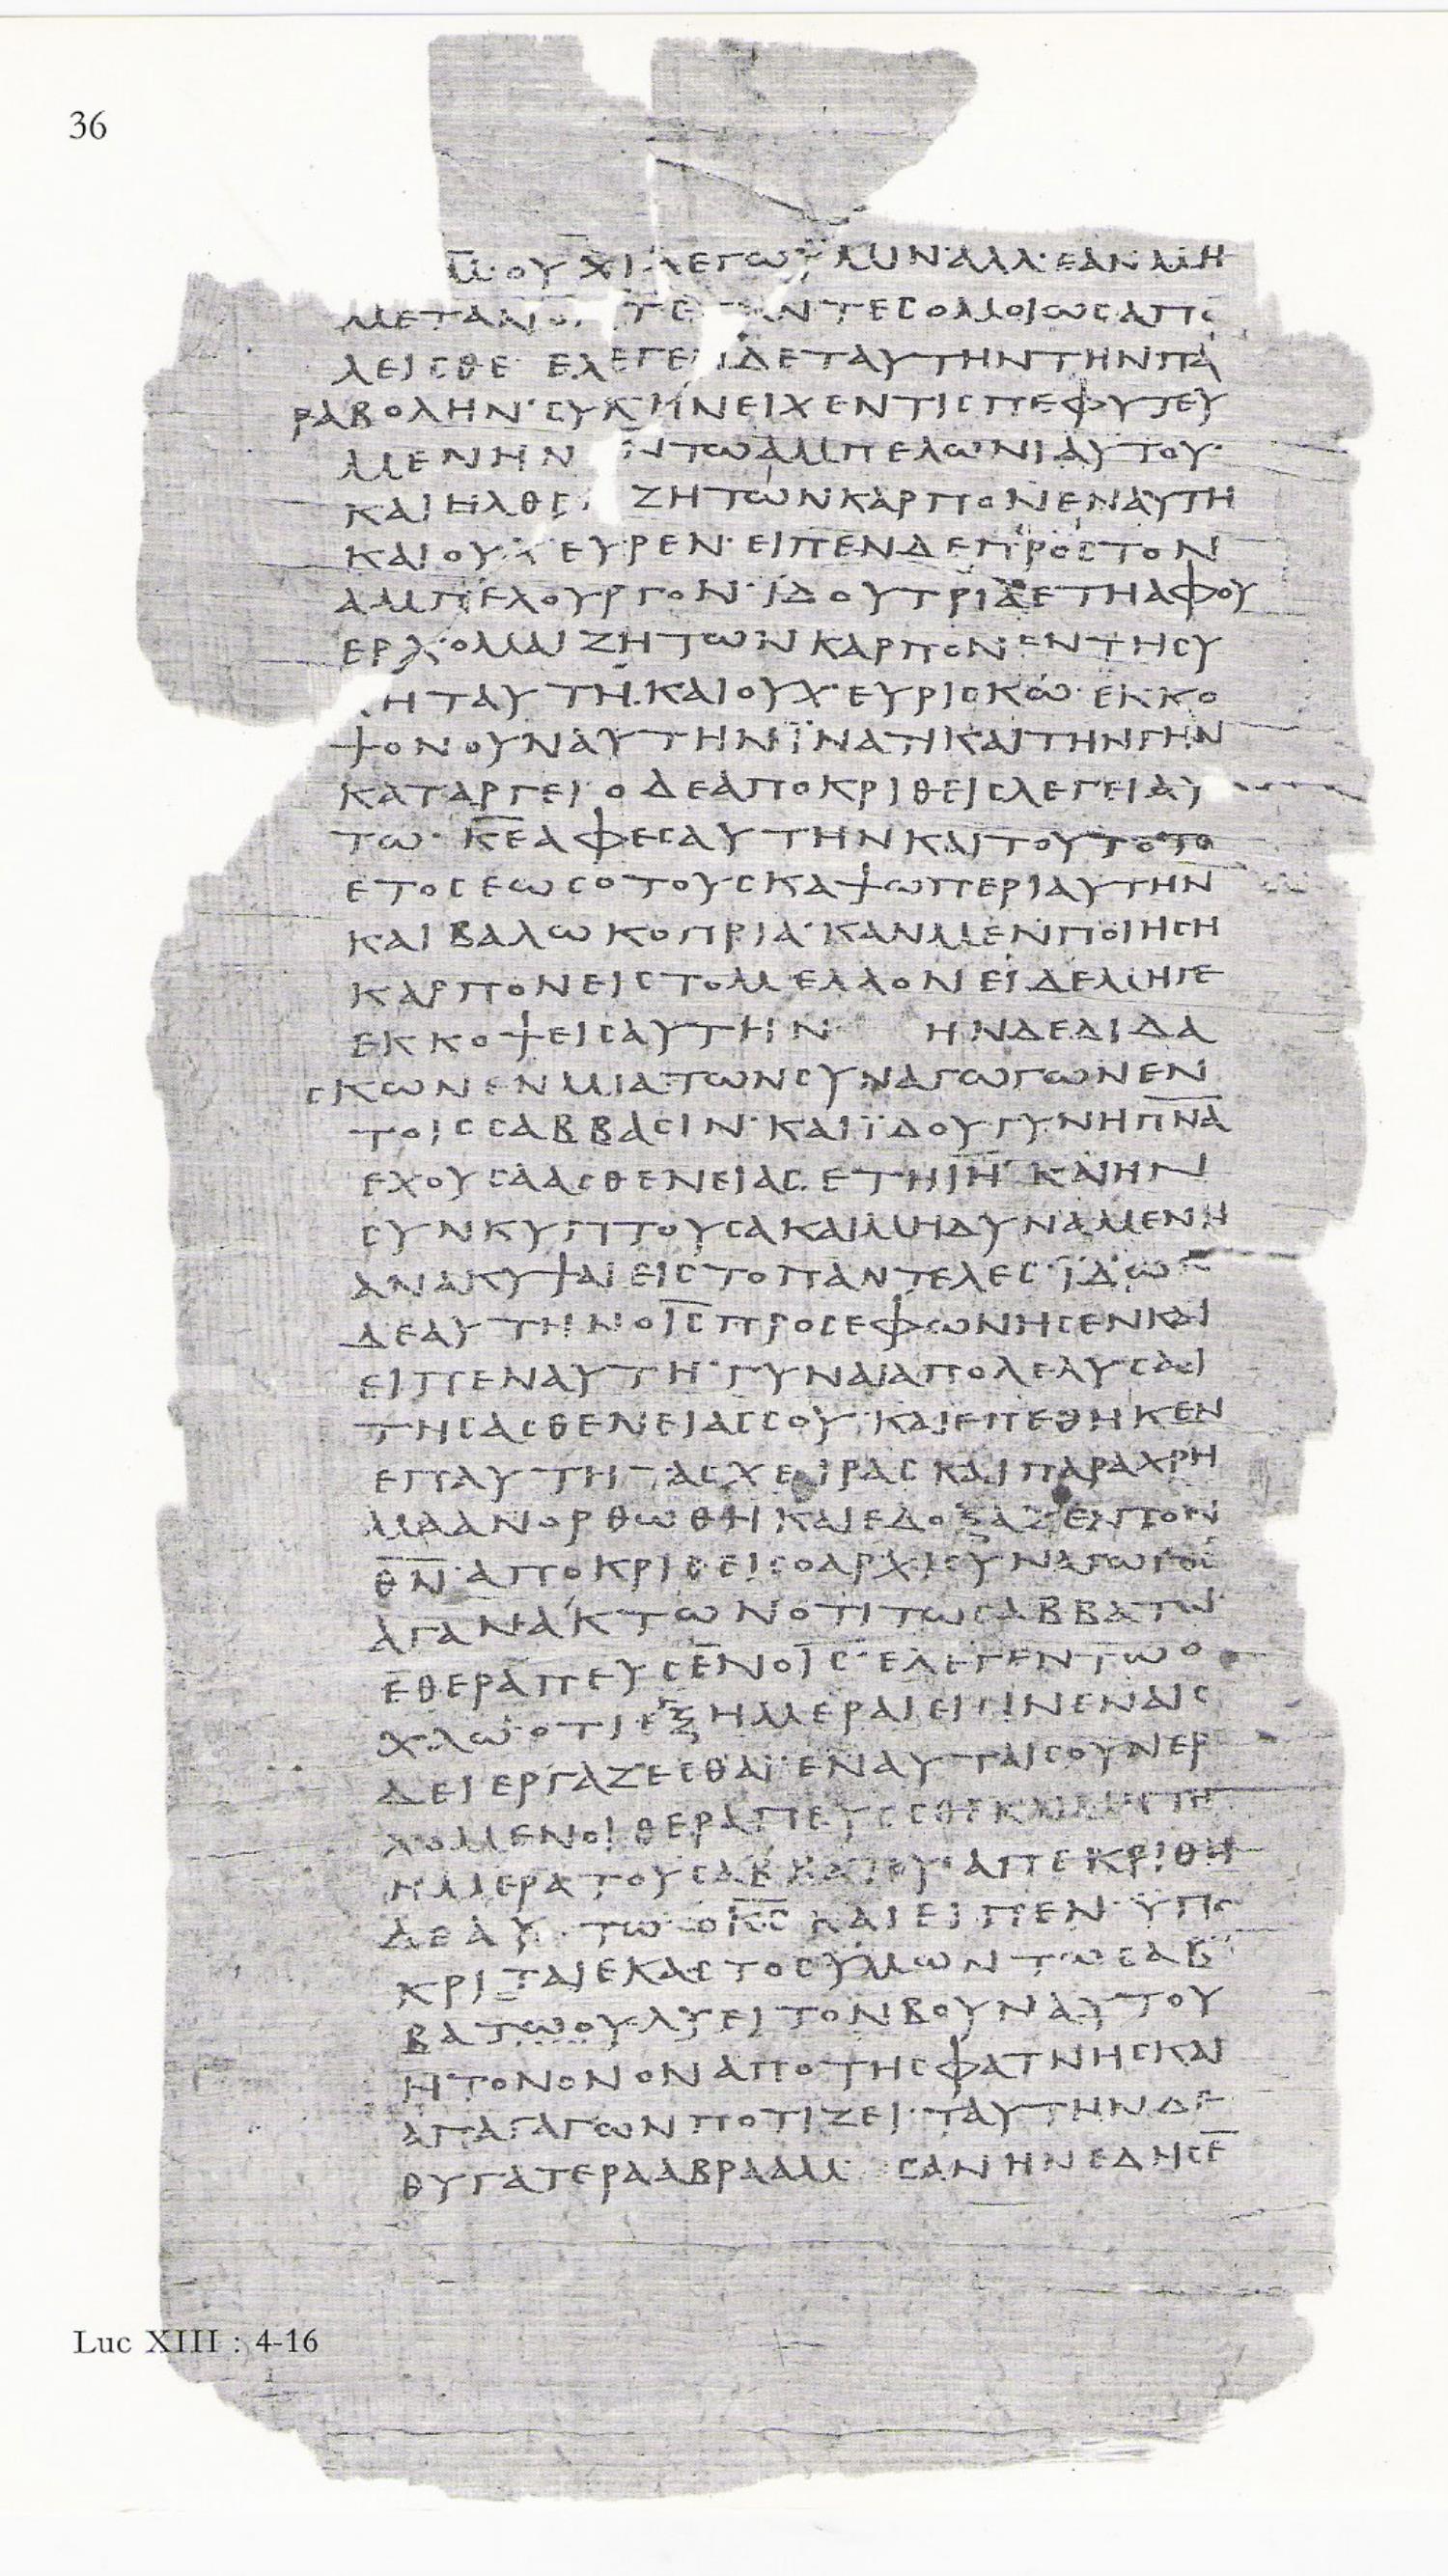 36
ΙΛΗΜ· ΟΥΧΙ ΛΕΓΩ ΫΜΙΝ· ΑΛΛ· ΕΑΝ ΜΗ
ΤΕΣ ΟΜΟΙΩΣ ΑΠΟ
ΛΕΙϹΘΕ· ΕΛΕΓΕΝ ΔΕ ΤΑΥΤΗΝ ΤΗΝ ΠΑ
ΡΑΒΟΛΗΝ· ϹΥΚΗΝ ΕΙΧΕΝ ΤΙϹ ΠΕΦΥΤΕΥ
ΜΕΝΗΝ ΕΝ ΤΩ ΑΜΠΕΛΩΝΙ ΑΥΤΟΥ·
ΚΑΙ ΗΛΘΕΝ ΖΗΤΩΝ ΚΑΡΠΟΝ ΕΝ ΑΥΤΗ
ΚΑΙ ΟΥΧ ΕΥΡΕΝ· ΕΙΠΕΝ ΔΕ ΠΡΟϹ ΤΟΝ
ΑΜΠΕΛΟΥΡΓΟΝ· ΙΔΟΥ ΤΡΙΑ ΕΤΗ ΑΦ ΟΥ
ΕΡΧΟΜΑΙ ΖΗΤΩΝ ΚΑΡΠΟΝ ΕΝ ΤΗ ϹΥ
ΚΗ ΤΑΥΤΗ· ΚΑΙ ΟΥΧ· ΕΥΡΙϹΚΩ· ΕΚΚΟ
ΨΟΝ ΟΥΝ ΑΥΤΗΝ ΪΝΑ ΤΙ ΚΑΙ ΤΗΝ ΓΗΝ
ΚΑΤΑΡΓΕΙ· Ο ΔΕ ΑΠΟΚΡΙΘΕΙϹ ΛΕΓΕΙ ΑΥ
ΤΩ· Κ̅Ε̅ ΑΦΕϹ ΑΥΤΗΝ ΚΑΙ ΤΟΥΤΟ ΤΟ
ΕΤΟϹ ΕΩϹ ΟΤΟΥ ϹΚΑΨΩ ΠΕΡΙ ΑΥΤΗΝ
ΚΑΙ ΒΑΛΩ ΚΟΠΡΙΑ· ΚΑΝ ΜΕΝ ΠΟΙΗϹΗ
ΚΑΡΠΟΝ ΕΙϹ ΤΟ ΜΕΛΛΟΝ ΕΙ ΔΕ ΜΗΓΕ
ΕΚΚΟΨΕΙϹ ΑΥΤΗΝ ΗΝ ΔΕ ΔΙΔΑ
ϹΚΩΝ ΕΝ ΜΙΑ ΤΩΝ ϹΥΝΑΓΩΓΩΝ ΕΝ
ΤΟΙϹ ϹΑΒΒΑϹΙΝ· ΚΑΙ ΪΔΟΥ ΓΥΝΗ Π̅Ν̅Α̅
ΕΧΟΥϹΑ ΑϹΘΕΝΕΙΑϹ ΕΤΗ Ι̅Η̅· ΚΑΙ ΗΝ
ϹΥΝΚΥΠΤΟΥϹΑ ΚΑΙ ΜΗ ΔΥΝΑΜΕΝΗ
ΑΝΑΚΥΨΑΙ ΕΙϹ ΤΟ ΠΑΝΤΕΛΕϹ· ΪΔΩ̅
ΔΕ ΑΥΤΗΝ Ο Ι̅Ϲ̅ ΠΡΟϹΕΦΩΝΗϹΕΝ ΚΑΙ
ΕΙΠΕΝ ΑΥΤΗ· ΓΥΝΑΙ ΑΠΟΛΕΛΥϹΑΙ
ΤΗϹ ΑϹΘΕΝΕΙΑϹ ϹΟΥ· ΚΑΙ ΕΠΕΘΗΚΕΝ
ΕΠ ΑΥΤΗ ΤΑϹ ΧΕΙΡΑϹ ΚΑΙ ΠΑΡΑΧΡΗ
ΜΑ ΑΝΟΡΘΩΘΗ ΚΑΙ ΕΔΟΞΑΖΕΝ ΤΟΝ
Θ̅Ν̅· ΑΠΟΚΡΙΘΕΙϹ Ο ΑΡΧΙϹΥΝΑΓΩΓΟϹ
ΑΓΑΝΑΚΤΩΝ ΟΤΙ ΤΩ ϹΑΒΒΑΤΩ
ΕΘΕΡΑΠΕΥϹΕΝ Ο Ι̅Ϲ̅· ΕΛΕΓΕΝ ΤΩ Ο
ΧΛΩ· ΟΤΙ ΕΞ ΗΜΕΡΑΙ ΕΙϹΙΝ ΕΝ ΑΙϹ
ΔΕΙ ΕΡΓΑΖΕϹΘΑΙ· ΕΝ ΑΥΤΑΙϹ ΟΥΝ ΕΡ
ΧΟΜΕΝΟΙ ΘΕΡΑΠΕΥΕϹΘΕ ΚΑΙ ΜΗ ΤΗ
ΗΜΕΡΑ ΤΟΥ ϹΑΒΒΑΤΟΥ· ΑΠΕΚΡΙΘΗ
ΔΕ ΑΥΤΩ Ο Κ̅Ϲ̅ ΚΑΙ ΕΙΠΕΝ· ΫΠΟ
ΚΡΙΤΑΙ ΕΚΑϹΤΟϹ ΥΜΩΝ ΤΩ ϹΑΒ
ΒΑΤΩ ΟΥ ΛΥΕΙ ΤΟΝ ΒΟΥΝ ΑΥΤΟΥ
Η ΤΟΝ ΟΝΟΝ ΑΠΟ ΤΗϹ ΦΑΤΝΗϹ ΚΑΙ
ΑΠΑΓΑΓΩΝ ΠΟΤΙΖΕΙ· ΤΑΥΤΗΝ ΔΕ
ΘΥΓΑΤΕΡΑ ΑΒΡΑΑΜ ϹΑΝ ΗΝ ΕΔΗϹΕ̅
Luc XIII : 4-16